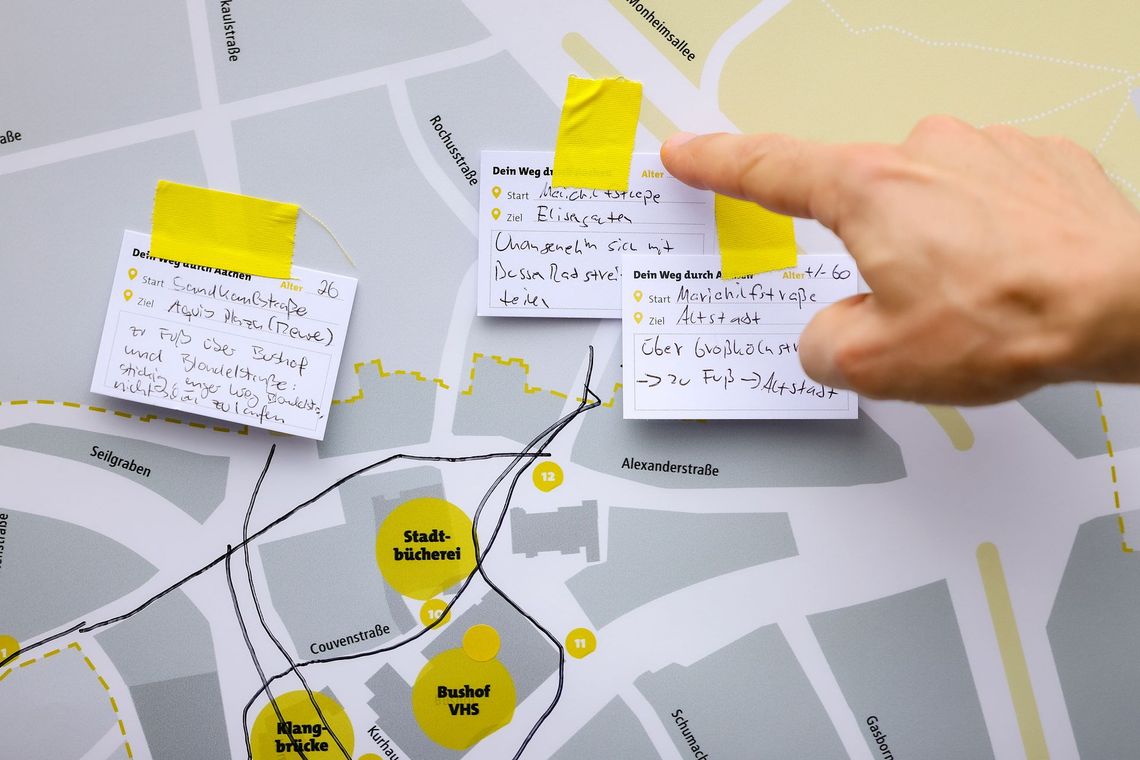 kaulstraße
Monheimsallee
aße
Rochusstraße
Dein Weg durch Aachen
Alter 26
Start Sandkaulstraße
Ziel Aquis Plaza (Mewe)
zu Fuß über Bushof
und Blondelstraße:
nicht schön zu laufen
Dein Weg du
Alter
Start Mariahilfstraße
Ziel Elisengarten
Unangenehm sich mit
Bussen Radstrei
teilen
Dein Weg durch A
Alter +/- 60
Start Mariahilfstraße
Ziel Altstadt
über Großkölnstr
-> zu Fuß -> Altstadt
Seilgraben
Alexanderstraße
12
Stadt-
bücherei
10
11
1
Couvenstraße
Bushof
VHS
Klang-
brücke
Kurhau
Schumach
Gasborn
straße